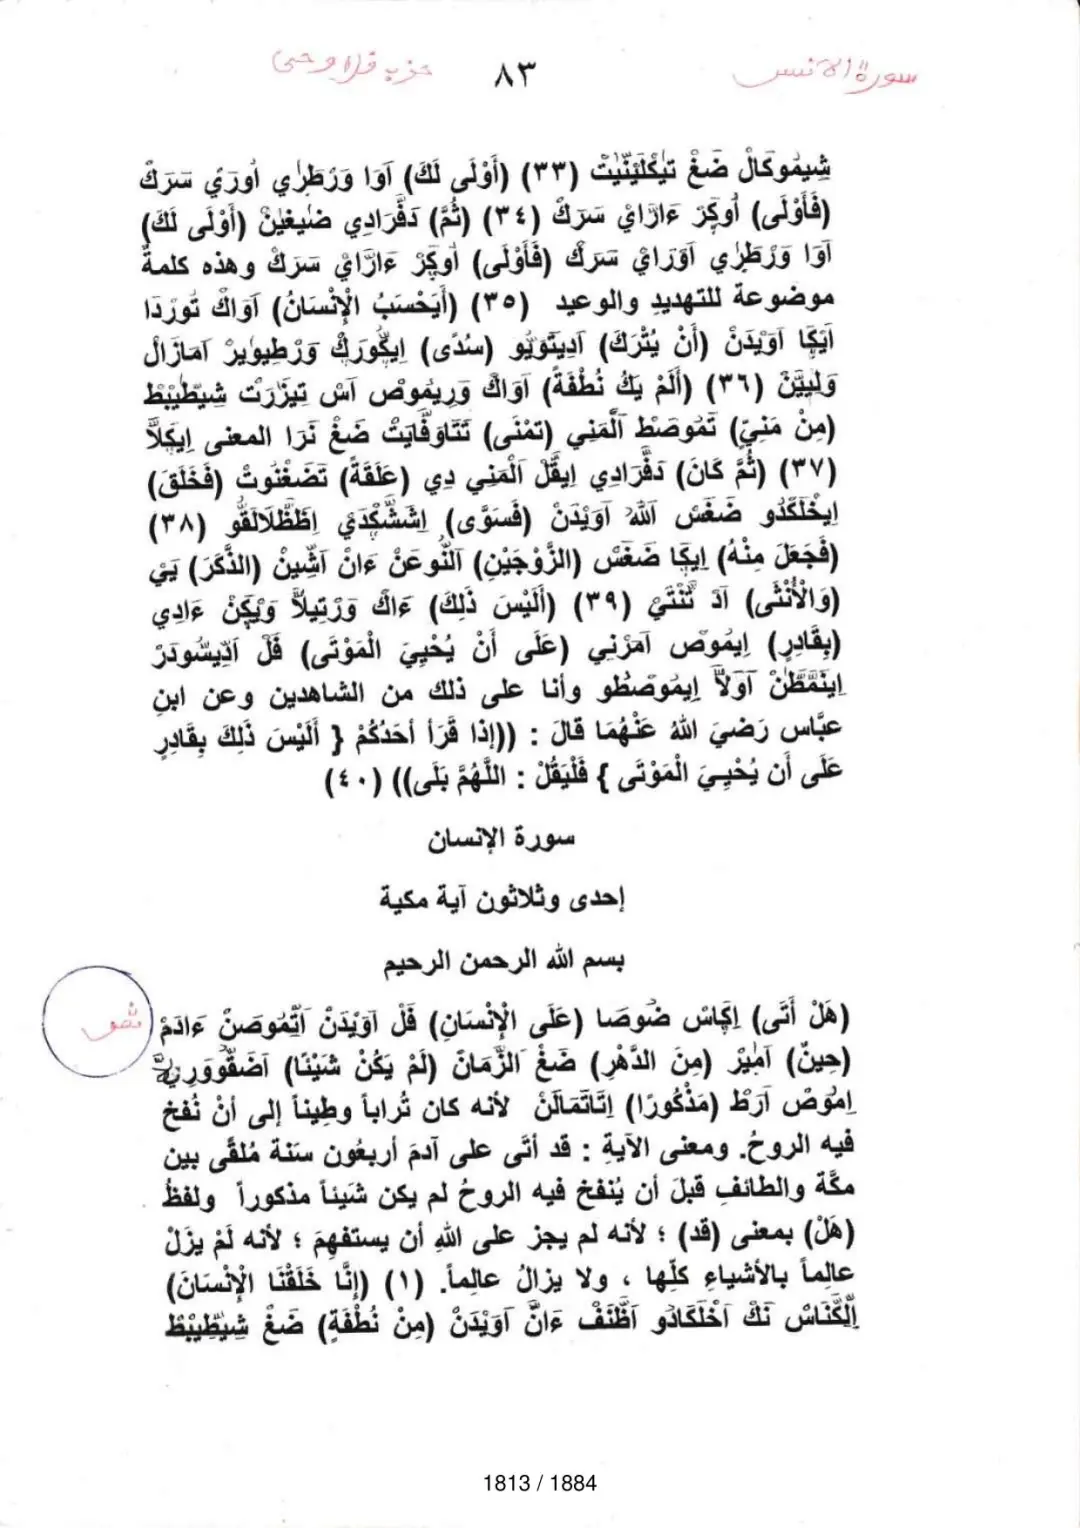 سورة الانس ٨٣ حزب قل اوحى
شِيمُوكَالْ ضَغْ تِيكْلَيَتِّينْ (٣٣) (أَوْلَى لَكَ) آوَا وَرْطَرِي أُورَيْ سَرَكْ
(فَأَوْلَى) أُوكِرْ ءَارَايْ سَرَكْ (٣٤) (ثُمَّ) دَفَّرَادِي ضِيغِينْ (أَوْلَى لَكَ)
آوَا وَرْطَرِي آوَرَايْ سَرَكْ (فَأَوْلَى) أُوكِرْ ءَارَّايْ سَرَكْ وهذه كلمةٌ
موضوعة للتهديدِ والوعيد (٣٥) (أَيَحْسَبُ الْإِنْسَانُ) آوَاكْ تُورْدَا
آيَكَا آوَيْدَنْ (أَنْ يُتْرَكَ) آدِيتَوَيُو (سُدًى) اِيكُورَكْ وَرْطِيوِيرْ آمَازَالْ
وَلِيَيَّنْ (٣٦) (أَلَمْ يَكُ نُطْفَةً) آوَاكْ وَرِيمُوصْ آسْ تِيزَّرَتْ شِيطِّيبْطْ
(مِنْ مَنِيٍّ) تَمُوصَطْ آلْمَنِي (تمْنَى) تَتَاوَفَّايَتْ ضَغْ نَرَا المعنى اِيكَلَّا
(٣٧) (ثُمَّ كَانَ) دَفَّرَادِي اِيقَلْ آلْمَنِي دِي (عَلَقَةً) تَضَغْنُوتْ (فَخَلَقَ)
اِيخْلَكَدُو ضَغَسْ آللهُ آوَيْدَنْ (فَسَوَّى) اِشَشْكَدَيْ اِظَظْلَالَقُو (٣٨)
(فَجَعَلَ مِنْهُ) اِيكَا ضَغَسْ (الزَّوْجَيْنِ) آلنُّوعَنْ ءَانْ آشِّينْ (الذَّكَرَ) يَيْ
(وَالْأُنْثَى) آدْ تُنْتَيْ (٣٩) (أَلَيْسَ ذَلِكَ) ءَاكْ وَرْتِيلَّا وَيْكَنْ ءَادِي
(بِقَادِرٍ) اِيمُوصْ آمَرْنِي (عَلَى أَنْ يُحْيِيَ الْمَوْتَى) فَلْ آدِّيسُّودَرْ
اِينَمَّطَنْ آوَلَّا اِيمُوصْطُو وأنا على ذلك من الشاهدين وعن ابنِ
عبَّاس رَضيَ اللهُ عَنْهُمَا قالَ : ((إذا قَرَأ أحَدُكُمْ { أَلَيْسَ ذَلِكَ بِقَادِرٍ
عَلَى أَن يُحْيِيَ الْمَوْتَى } فَلْيَقُلْ : اللَّهُمَّ بَلَى)) (٤٠)
سورة الإنسان
إحدى وثلاثون آية مكية
بسم الله الرحمن الرحيم
(هَلْ أَتَى) اِكَاسْ ضُوصَا (عَلَى الْإِنْسَانِ) فَلْ آوَيْدَنْ آتَّمُوصَنْ ءَادَمْ
ثمن
(حِينٌ) آمَيْرْ (مِنَ الدَّهْرِ) ضَغْ آلزَّمَانْ (لَمْ يَكُنْ شَيْئًا)
اِمُوصْ آرَطْ (مَذْكُورًا) اِتَاتَمَالَنْ لأنه كان تُراباً وطيناً إلى أنْ نُفخ
فيه الروحُ. ومعنى الآيةِ : قد أتَى على آدمَ أربعُون سنَة مُلقًى بين
مكَّة والطائفِ قبلَ أن يُنفخ فيه الروحُ لم يكن شَيئاً مذكوراً ولفظُ
(هَلْ) بمعنى (قد) ؛ لأنه لم يجز على اللهِ أن يستفهِمَ ؛ لأنه لَمْ يزَلْ
عالِماً بالأشياءِ كلِّها ، ولا يزالُ عالِماً. (١) (إِنَّا خَلَقْنَا الْإِنْسَانَ)
اِلْكَنَاسْ نَكْ آخْلَكَادُو آظَّنَفْ ءَانْ آوَيْدَنْ (مِنْ نُطْفَةٍ) ضَغْ شِيطِّيبْطْ
1813 / 1884